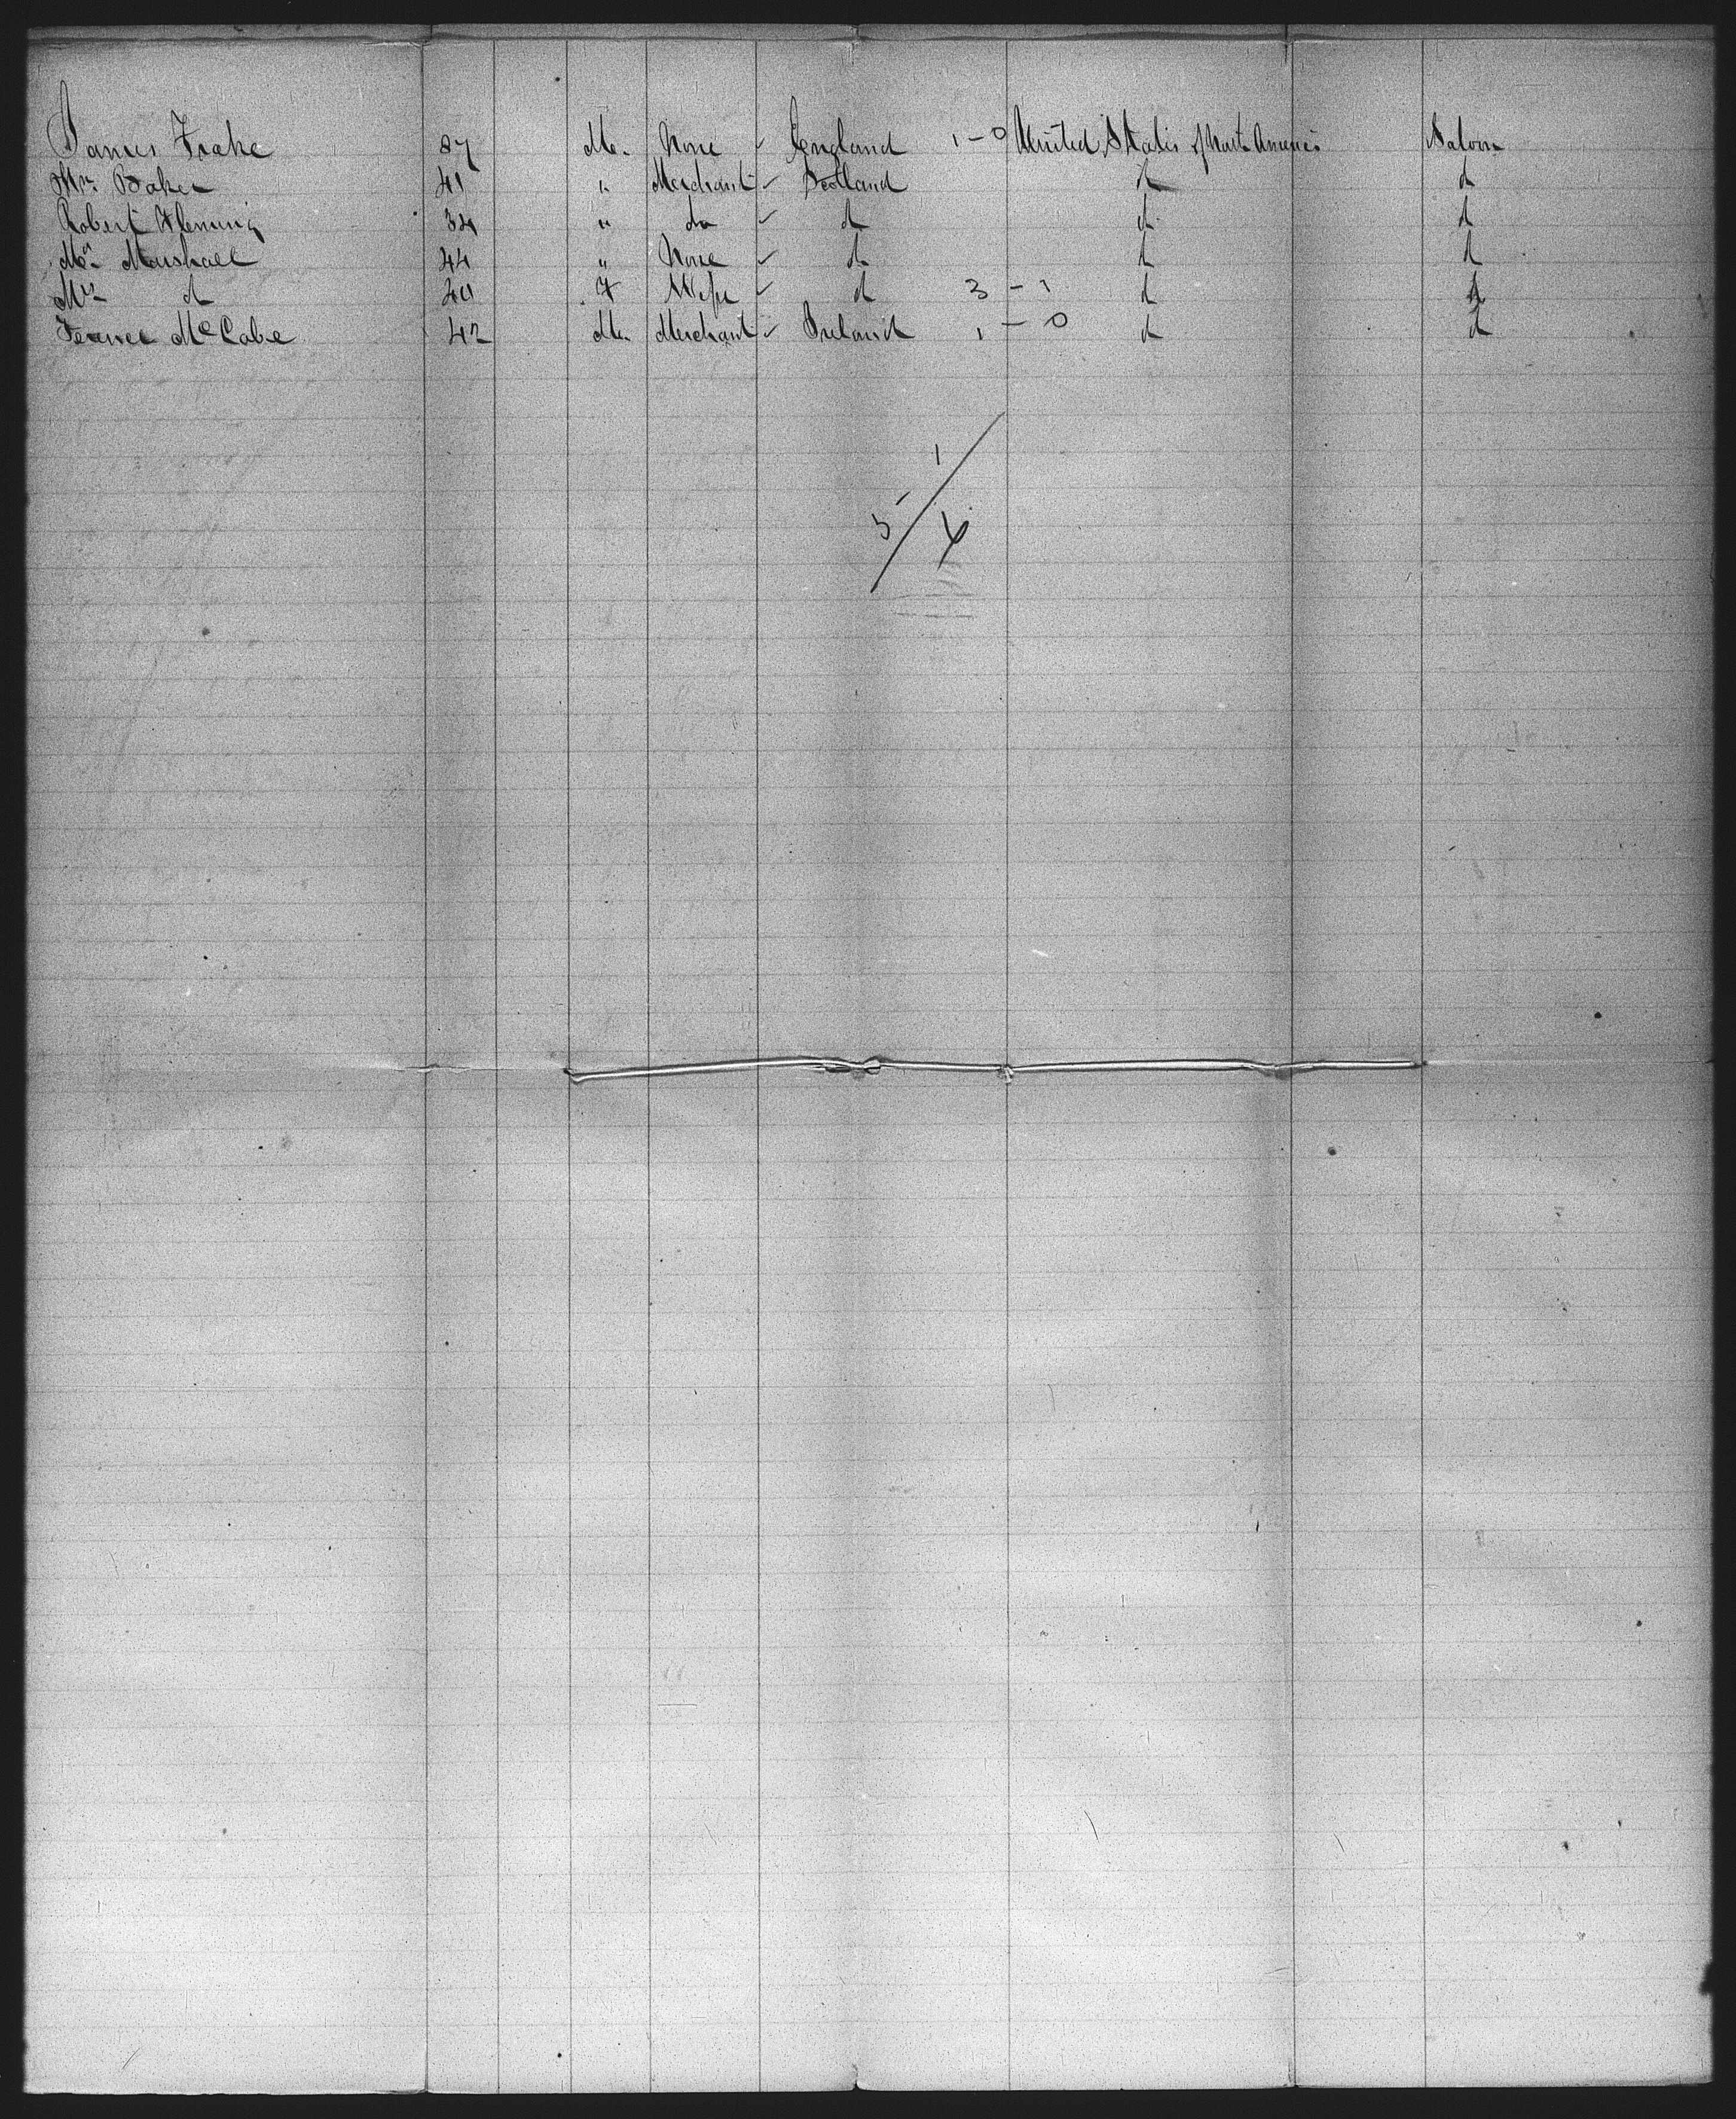 James Frake 27 M. None ✓ England 1 – 0 United States of North America Saloon
Mr. Baker 41 " Merchant ✓ Scotland do do
Robert Fleming 34 " do ✓ do do do
Mr. Marshall 44 " None ✓ do do do
Mrs do 40 F Wife ✓ do 3 – 1 do do
McCabe 42 M. Merchant ✓ Ireland 1 – 0 do do
5 – 1
6